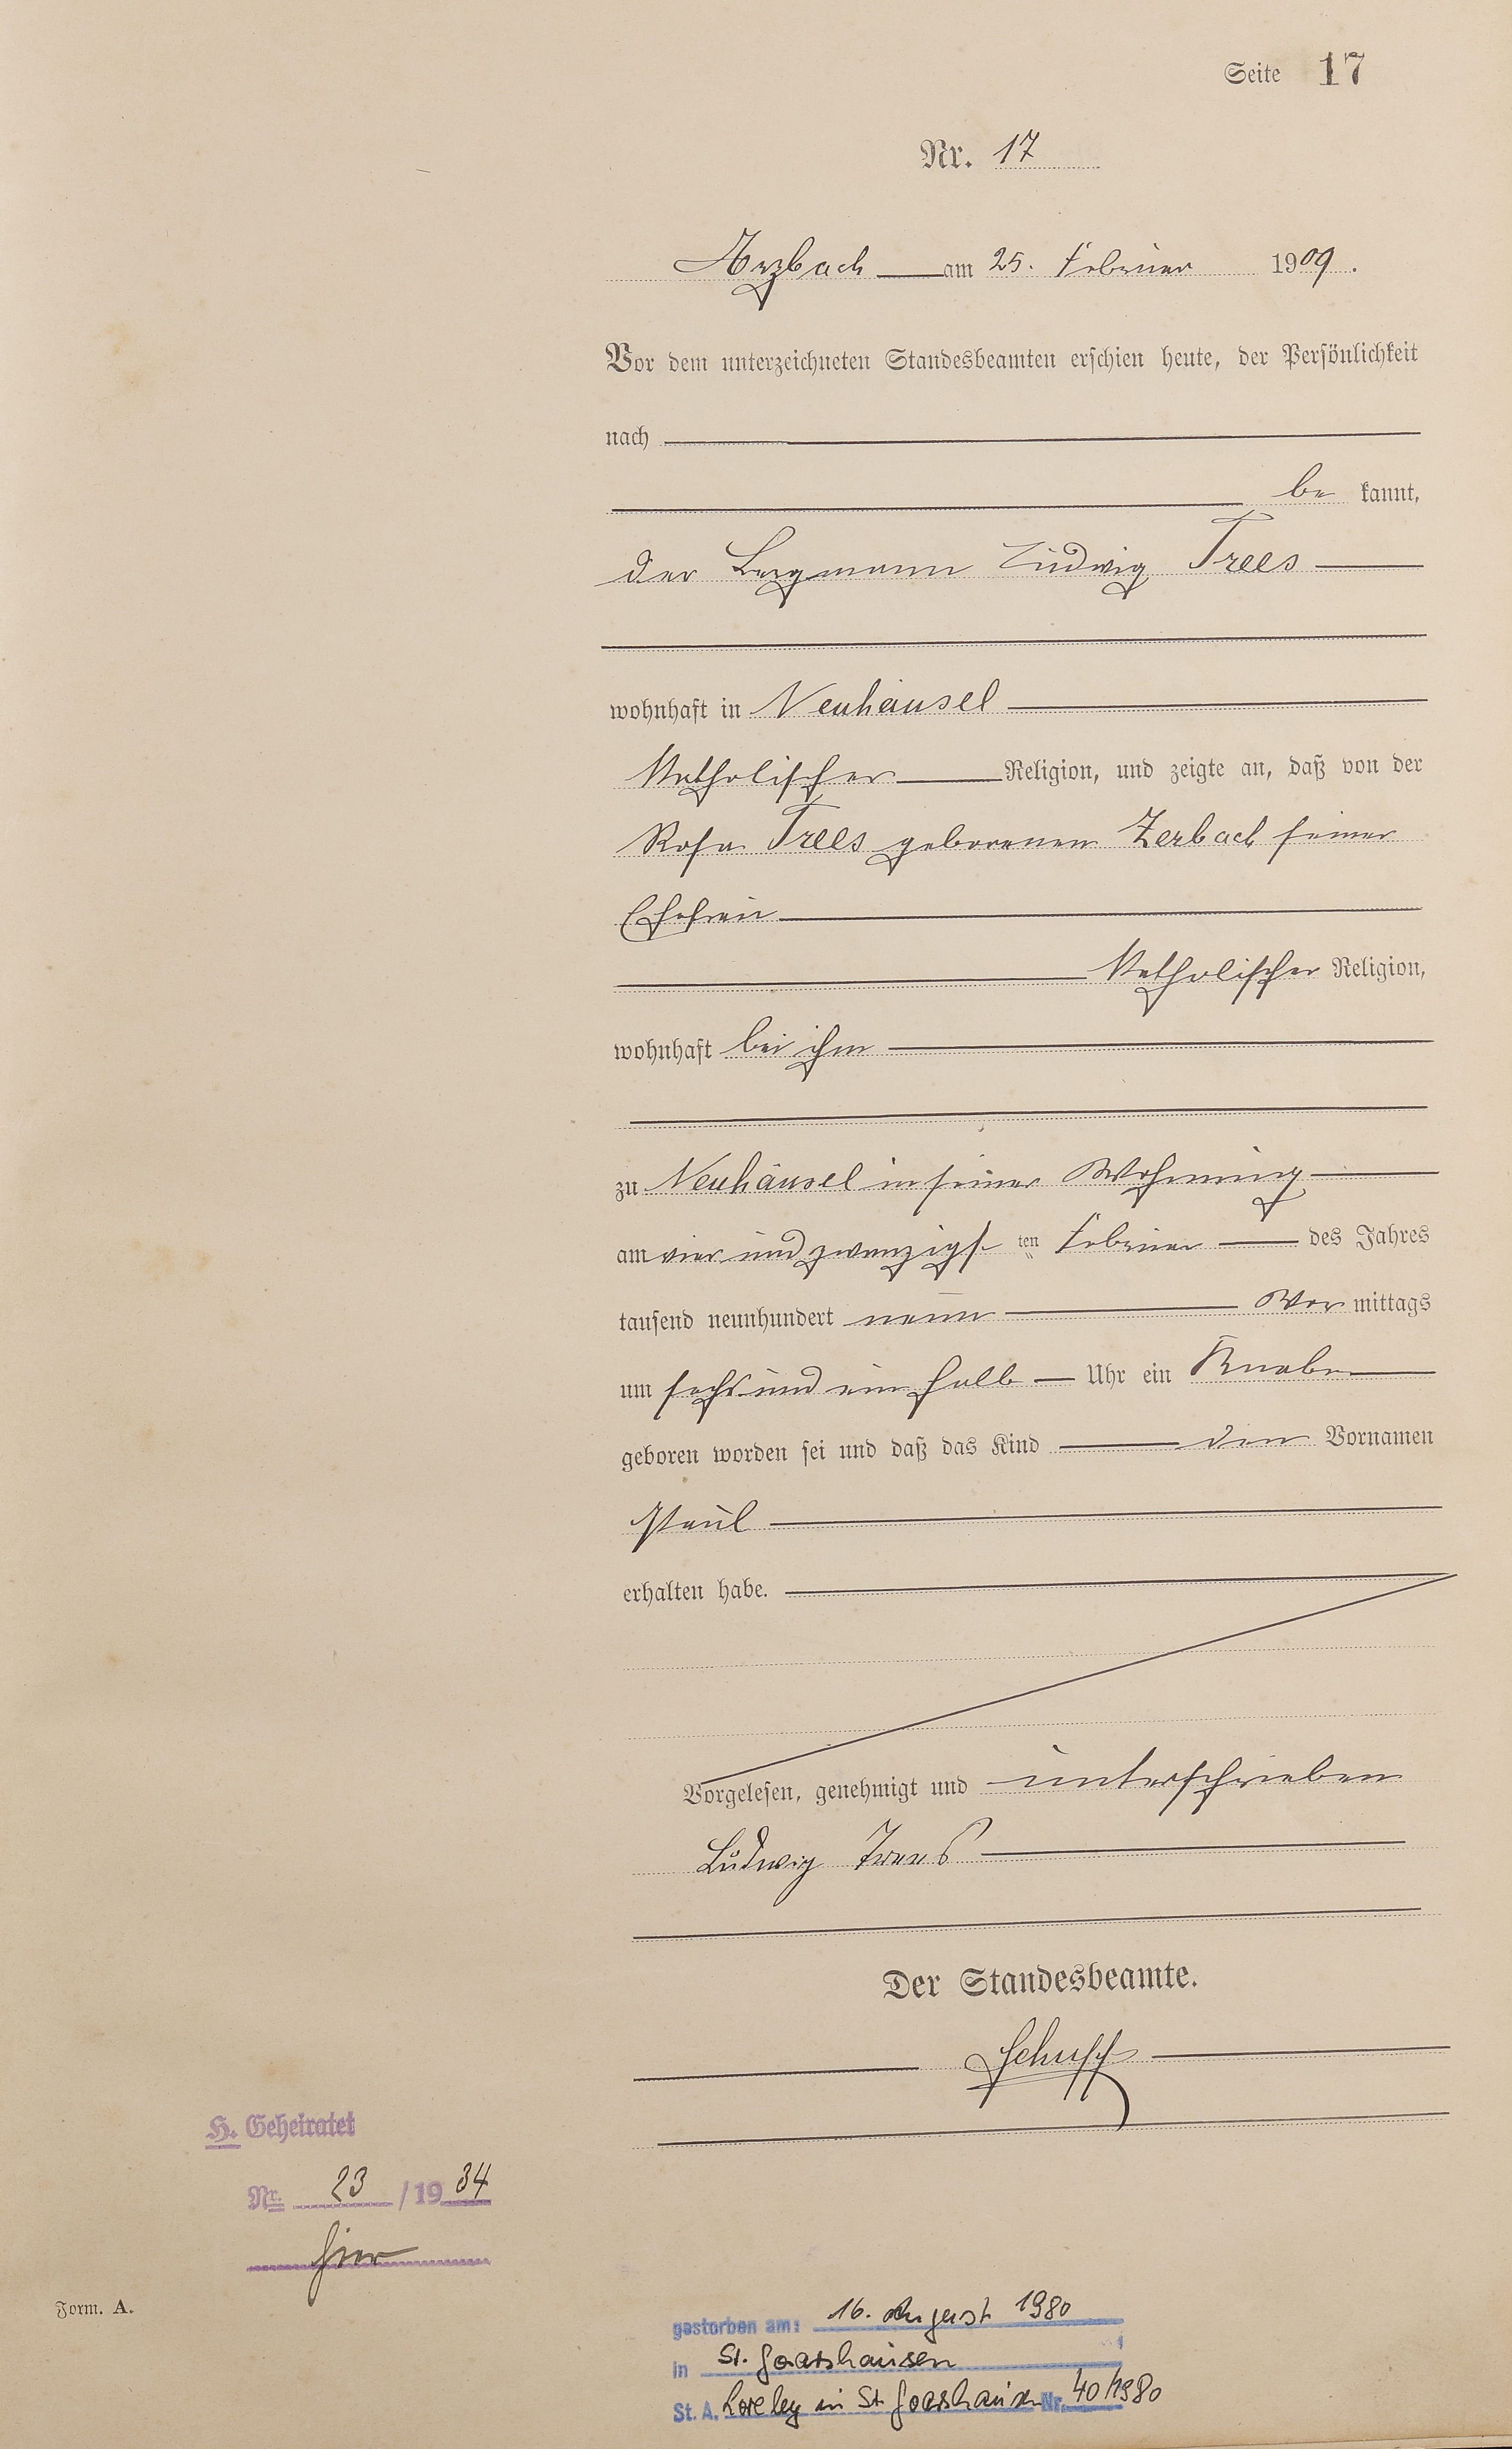 Seite 17
Nr. 17
Arzbach am 25. Februar 1909.
Vor dem unterzeichneten Standesbeamten erschien heute, der Persönlichkeit
nach
be kannt,
der Bergmann Ludwig Trees
wohnhaft in Neuhäusel
katholischer Religion, und zeigte an, daß von der
Rosa Trees geborenen Zerbach seiner
Ehefrau
katholischer Religion,
wohnhaft bei ihm
zu Neuhäusel in seiner Wohnung
am vier und zwanzigs ten Februar des Jahres
tausend neunhundert neun Vor mittags
um sechs und ein halb Uhr ein Knabe
geboren worden sei und daß das Kind den Vornamen
Paul
erhalten habe.
Vorgelesen, genehmigt und unterschrieben
Ludwig Trees
Der Standesbeamte.
Schuff
H. Geheiratet
Nr. 23 / 19 34
hier
Form. A.
gestorben am: 16. August 1980
in St. Goarshausen
St. A. Loreley in St. Goarshausen Nr. 40/1980